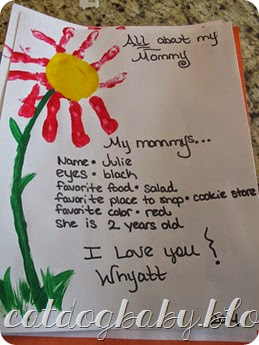 All about my
Mommy
My mommys...
Name • Julie
eyes • black
favorite food • salad
favorite place to shop • cookie store
favorite color • red
she is 2 years old
I love you
Whyatt
catdogbaby.blo